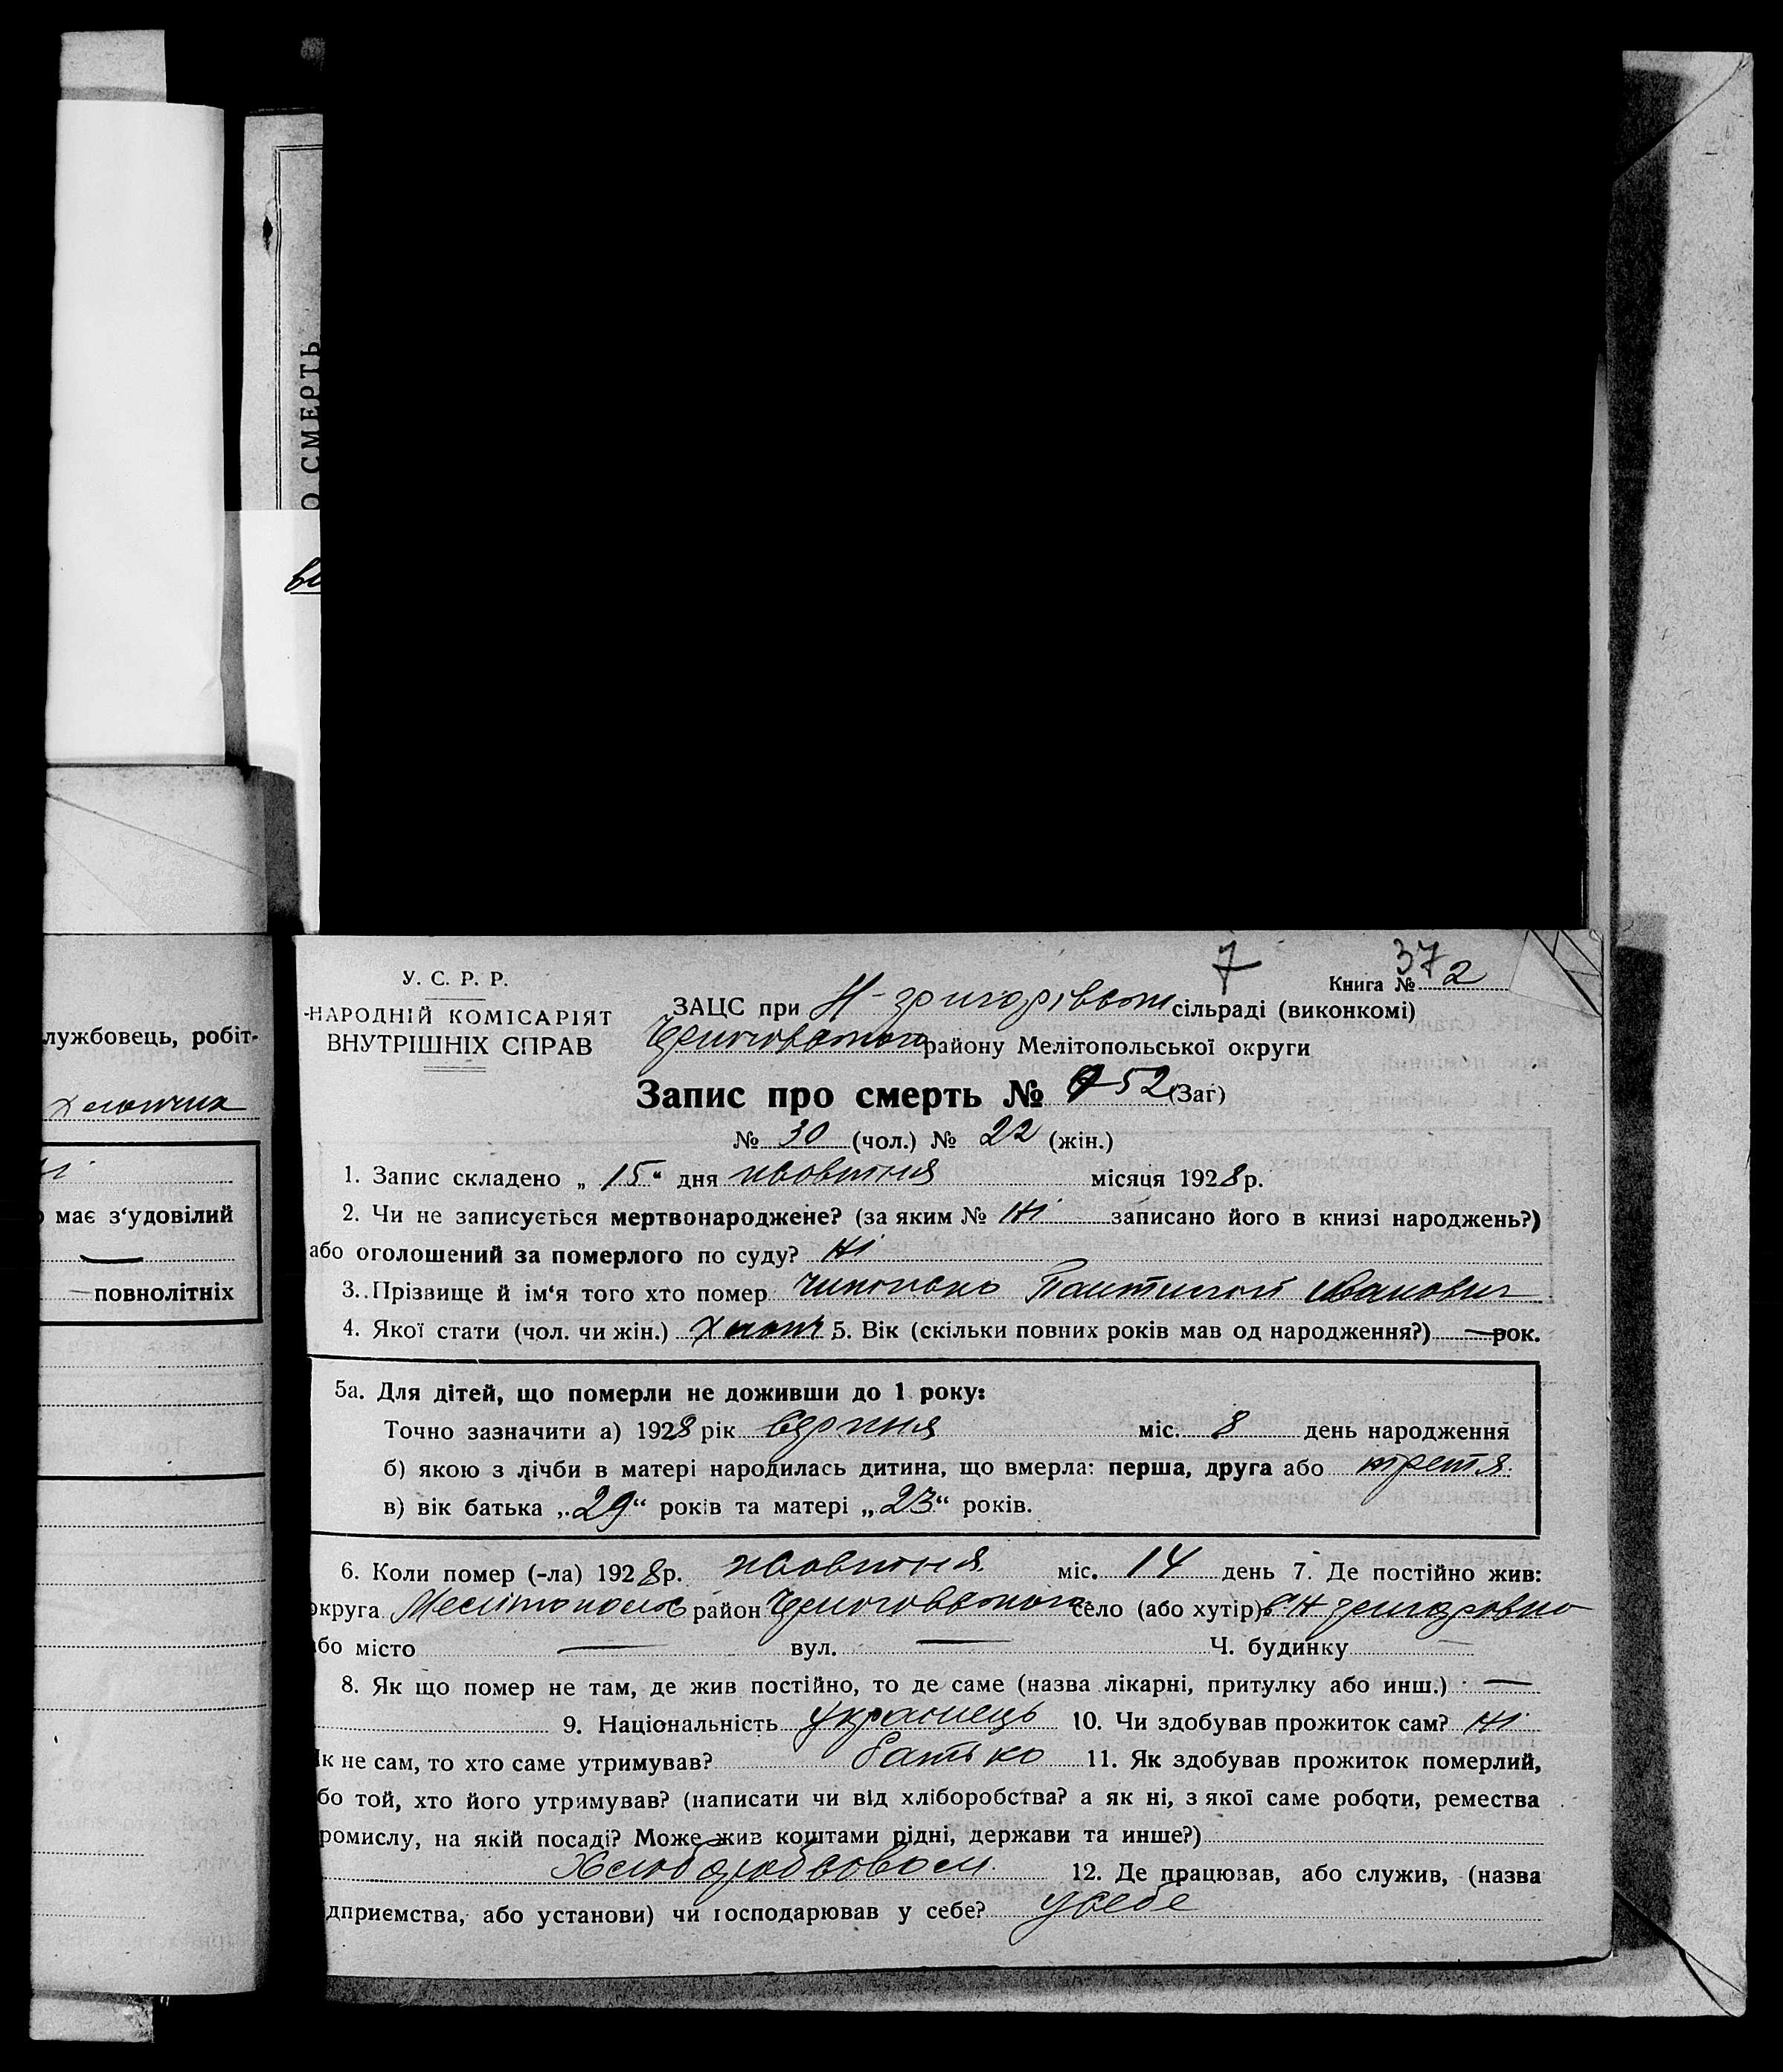 О СМЕРТЬ
лужбовець, робіт-
хлопчик
ні
о має з‘удовілий
—
— повнолітніх
7
37
Книга № 2
У. С. Р. Р.
НАРОДНІЙ КОМІСАРІЯТ
ВНУТРІШНІХ СПРАВ
ЗАЦС при Н-григорівськ сільраді (виконкомі)
району Мелітопольської округи
Запис про смерть № 52 (Заг)
№ 30 (чол.) № 22 (жін.)
1. Запис складено „ 15 “ дня жовтня місяця 1928 р.
2. Чи не записується мертвонароджене? (за яким № ні записано його в книзі народжень?)
або оголошений за померлого по суду? ні
3. Прізвище й ім‘я того хто помер Пантилей Іванович
4. Якої стати (чол. чи жін.) хлопч 5. Вік (скільки повних років мав од народження?) — рок.
5а. Для дітей, що померли не доживши до 1 року:
Точно зазначити а) 1928 рік серпня міс. 8 день народження
б) якою з лічби в матері народилась дитина, що вмерла: перша, друга або третя.
в) вік батька „ 29 “ років та матері „ 23 “ років.
6. Коли помер (-ла) 1928 р. жовтня міс. 14 день 7. Де постійно жив:
округа Мелітополь район село (або хутір)
або місто — вул. — Ч. будинку —
8. Як що помер не там, де жив постійно, то де саме (назва лікарні, притулку або инш.) —
9. Національність українець 10. Чи здобував прожиток сам? ні
к не сам, то хто саме утримував? батько 11. Як здобував прожиток померлий,
бо той, хто його утримував? (написати чи від хліборобства? а як ні, з якої саме роботи, ремества
ромислу, на якій посаді? Може жив коштами рідні, держави та инше?)
12. Де працював, або служив, (назва
дприємства, або установи) чи господарював у себе? у себе